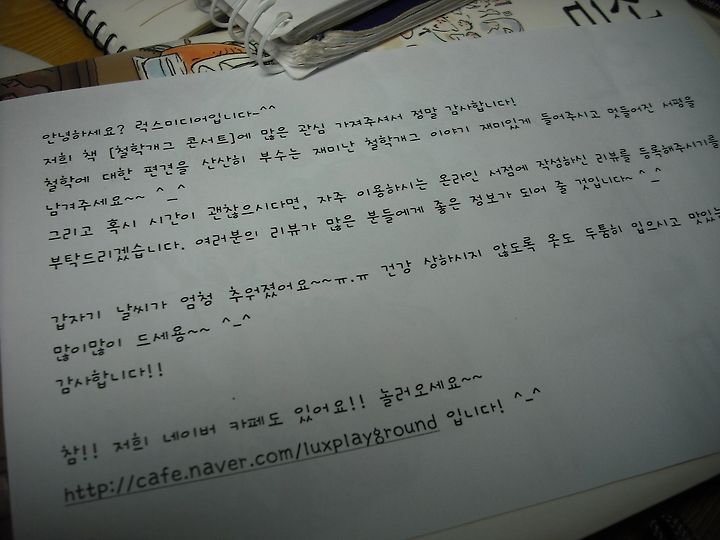 안녕하세요? 럭스미디어입니다-^^
저희 책 [철학개그 콘서트]에 많은 관심 가져주셔서 정말 감사합니다!
철학에 대한 편견을 산산히 부수는 재미난 철학개그 이야기 재미있게 들어주시고 멋들어진 서평을
남겨주세요~~ ^_^
그리고 혹시 시간이 괜찮으시다면, 자주 이용하시는 온라인 서점에 작성하신 리뷰를 등록해주시기를
부탁드리겠습니다. 여러분의 리뷰가 많은 분들에게 좋은 정보가 되어 줄 것입니다~ ^_^
갑자기 날씨가 엄청 추워졌어요~~ㅠ.ㅠ 건강 상하시지 않도록 옷도 두툼히 입으시고 맛있는
많이많이 드세용~~ ^_^
감사합니다!!
참!! 저희 네이버 카페도 있어요!! 놀러오세요~~
http://cafe.naver.com/luxplayground 입니다! ^_^